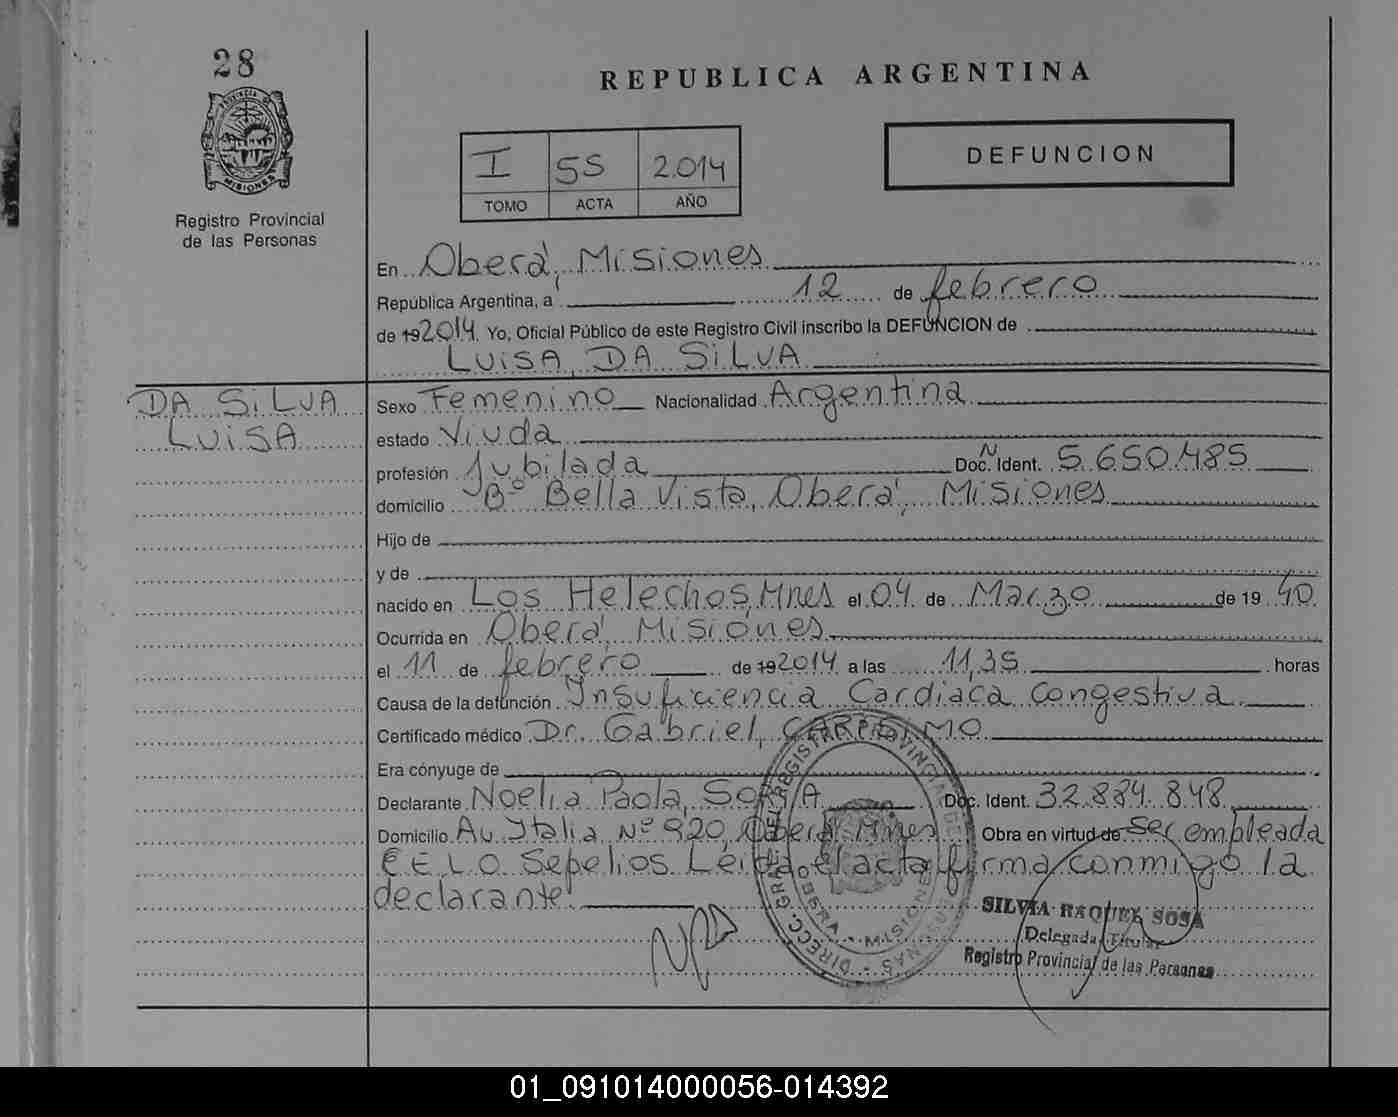 28
REPUBLICA ARGENTINA
PROVINCIA DE
MISIONES
Registro Provincial
de las Personas
I 55 2.014
TOMO ACTA AÑO
DEFUNCION
En Oberá, Misiones
República Argentina, a 12 de febrero
de 19 2014. Yo, Oficial Público de este Registro Civil inscribo la DEFUNCION de
LUISA DA SILVA
DA SILVA
LUISA
Sexo Femenino Nacionalidad Argentina
estado Viuda
profesión Jubilada Doc. N Ident. 5.650.485
domicilio Bº Bella Vista, Oberá, Misiones
Hijo de
y de
nacido en Los Helechos, Mnes el 04 de Marzo de 19 40
Ocurrida en Oberá, Misiones
el 11 de febrero de 19 2014 a las 11,35 horas
Causa de la defunción Insuficiencia Cardiaca Congestiva
Certificado médico Dr. Gabriel,
Era cónyuge de
Declarante Noelia Paola, Doc. Ident. 32.884.848
Domicilio Av. Italia Nº 920, Oberá Mnes Obra en virtud de ser empleada
C.E.L.O. Sepelios. Leida el acta firma conmigo la
declarante.
DIRECC. GRAL. DEL REGISTRO PROVINCIAL DE LAS PERSONAS
OBERA - MISIONES
SILVIA RAQUEL SOSA
Delegada Titular
Registro Provincial de las Personas
01_091014000056-014392